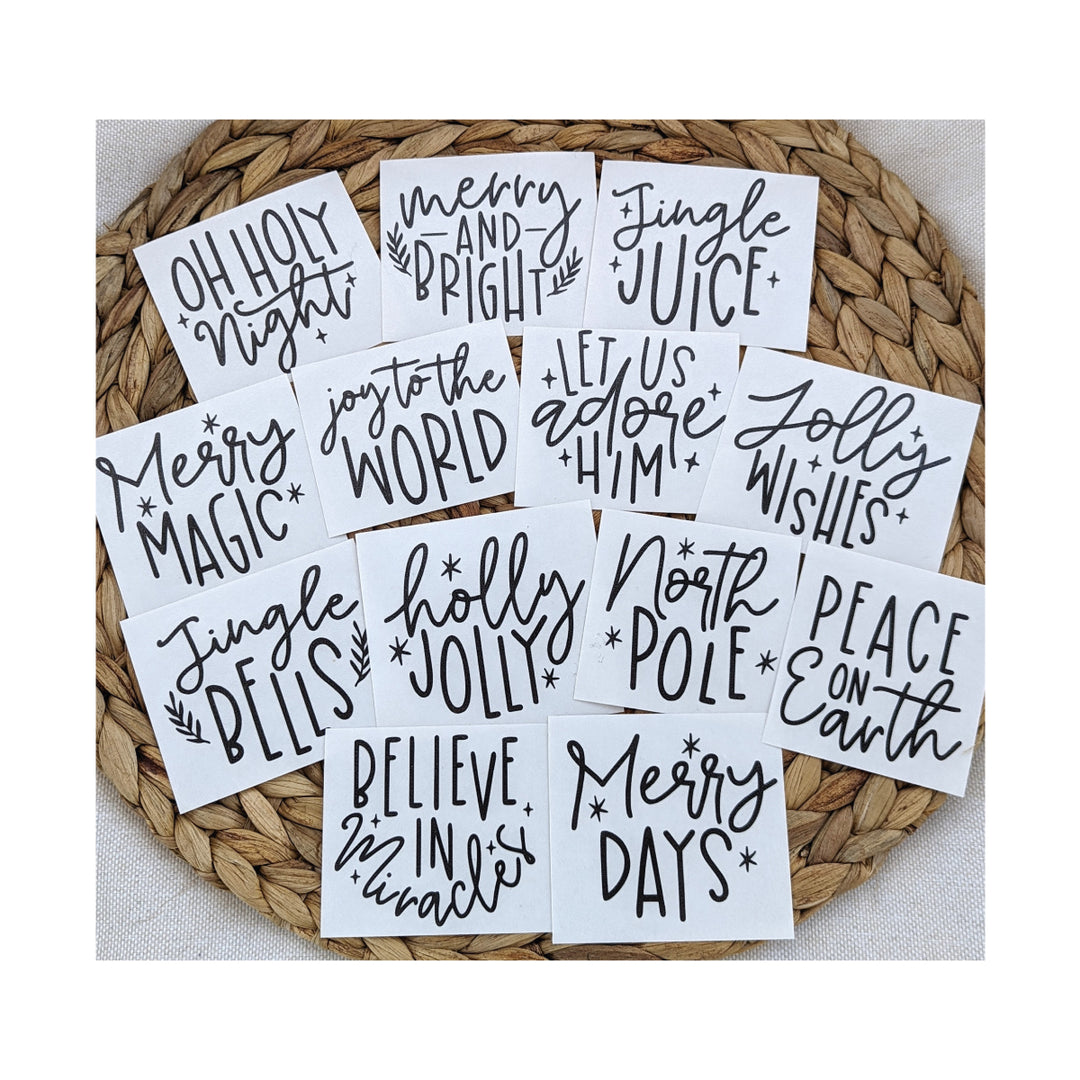 OH HOLY
Night
merry
AND
BRIGHT
Jingle
JUICE
Merry
MAGIC
joy to the
WORLD
LET US
adore
HIM
Jolly
WISHES
Jingle
BELLS
holly
JOLLY
North
POLE
PEACE
ON
Earth
BELIEVE
IN
Miracles
Merry
DAYS